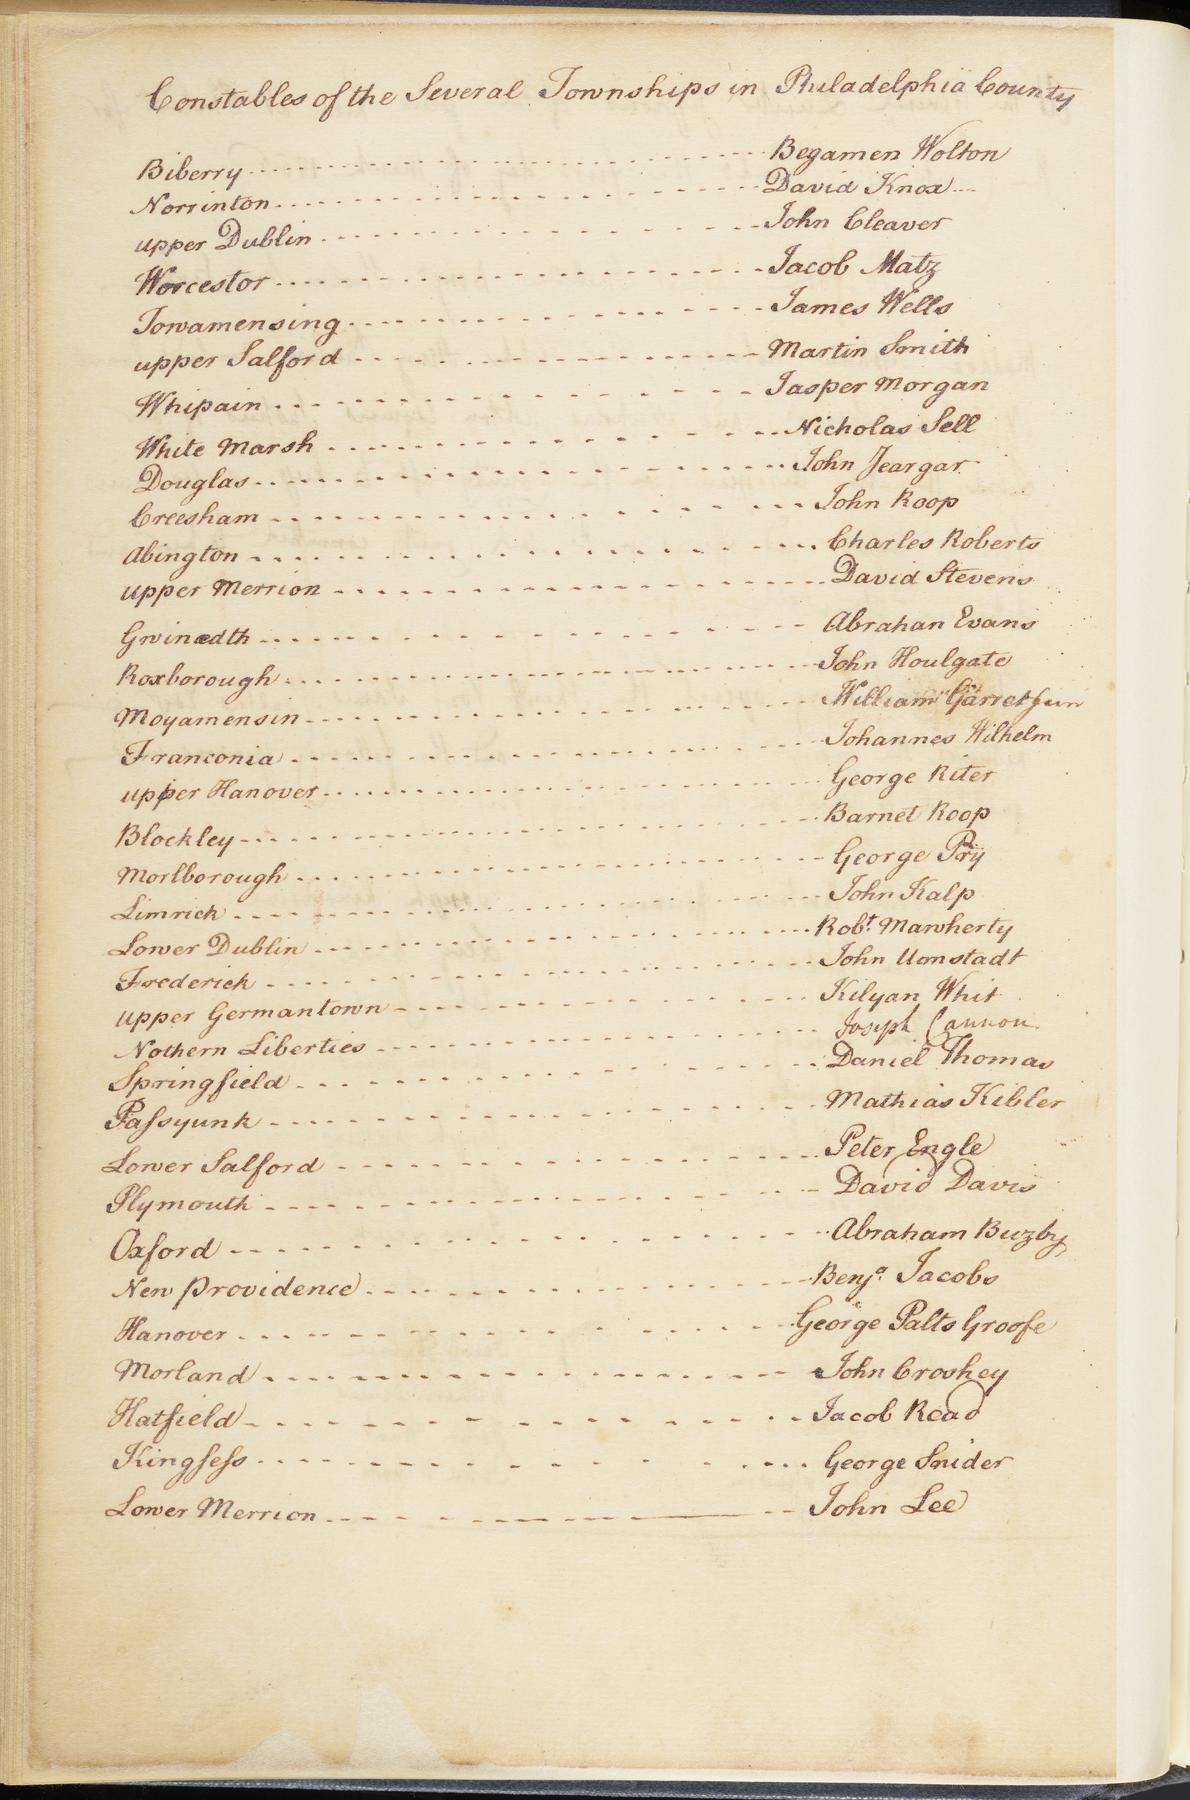 Constables of the Several Townships in Philadelphia County
Biberry - - - Begamen Wolton
Norrinton - - - David Knox
upper Dublin - - - John Cleaver
Worcestor - - - Jacob Matz
Towamensing - - - James Wells
upper Salford - - - Martin Smith
Whipain - - - Jasper Morgan
White Marsh - - - Nicholas Sell
Douglas - - - John Jeargar
Creesham - - - John Roop
Abington - - - Charles Roberts
upper Merrion - - - David Stevens
Gwinedth - - - Abrahan Evans
Roxborough - - - John Houlgate
Moyamensin - - - William Garretson
Franconia - - - Johannes Wilhelm
upper Hanover - - - George Riter
Blockley - - - Barnet Roop
Morlborough - - - George Pry
Limrick - - - John Kalp
Lower Dublin - - - Robt. Mawherty
Frederick - - - John Umstadt
upper Germantown - - - Kilyan Whit
Nothern Liberties - - - Joseph Cannon
Springfield - - - Daniel Thomas
Passyunk - - - Mathias Kibler
Lower Salford - - - Peter Engle
Plymouth - - - David Davis
Oxford - - - Abraham Buzby
New Providence - - - Benja. Jacobs
Hanover - - - George Palts Groofe
Morland - - - John Croshey
Hatfield - - - Jacob Read
Kingsess - - - George Snider
Lower Merrion - - - John Lee